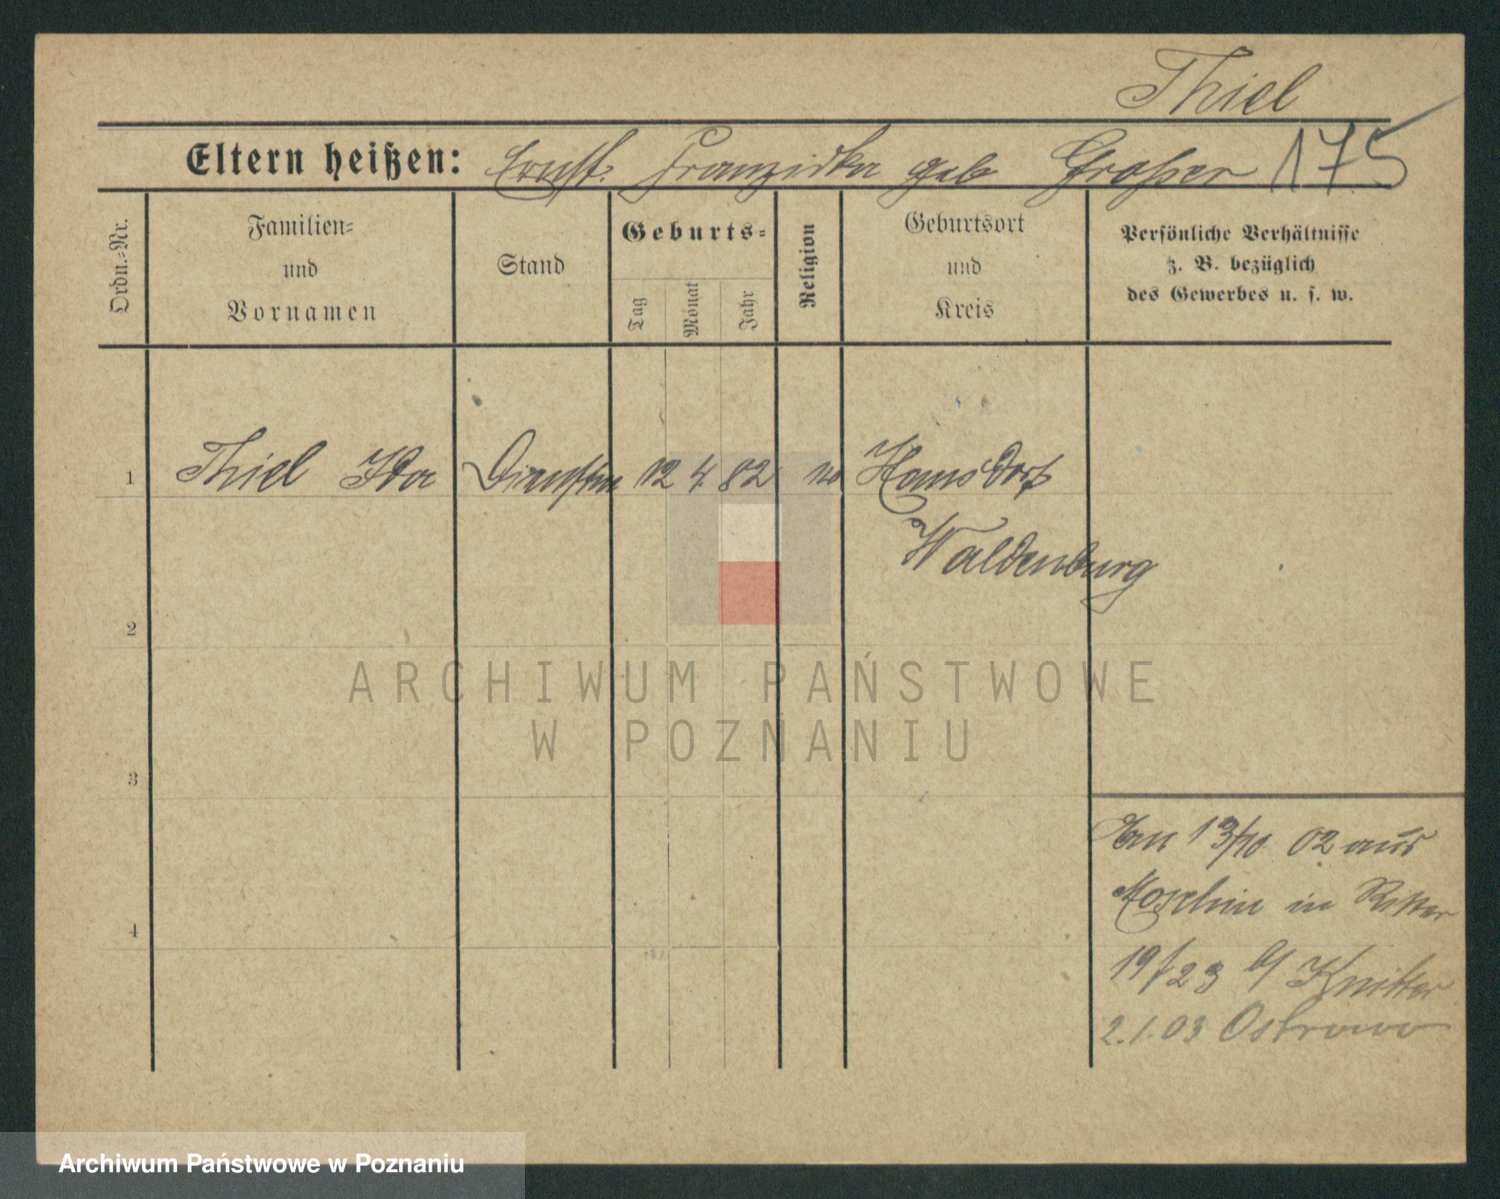 Thiel
Eltern heißen: Ernst. Franziska geb Großer 175
Ordn.=Nr.
Familien=
und
Vornamen
Stand
Geburts=
Tag
Monat
Jahr
Religion
Geburtsort
und
Kreis
Persönliche Verhältnisse
z. B. bezüglich
des Gewerbes u. s. w.
1 Thiel Ida 12 4. 82 Hausdorf
Waldenburg
2
3
4
13/10 02 aus
Moschin in Ritter
19/23 b/ Knitter
2.1.03 Ostrowo
ARCHIWUM PAŃSTWOWE
W POZNANIU
Archiwum Państwowe w Poznaniu